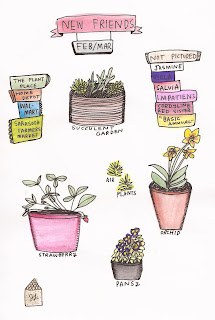 NEW FRIENDS
FEB/MAR
THE PLANT
PLACE
HOME
DEPOT
WAL-
MART
SARASOTA
FARMERS
MARKET
NOT PICTURED
JASMINE
SALVIA
IMPATIENS
CORDYLINE
RED SISTER
"BASIC
ANNUAL"
SUCCULENT
GARDEN
AIR
PLANTS
STRAWBERRY
ORCHID
PANSY